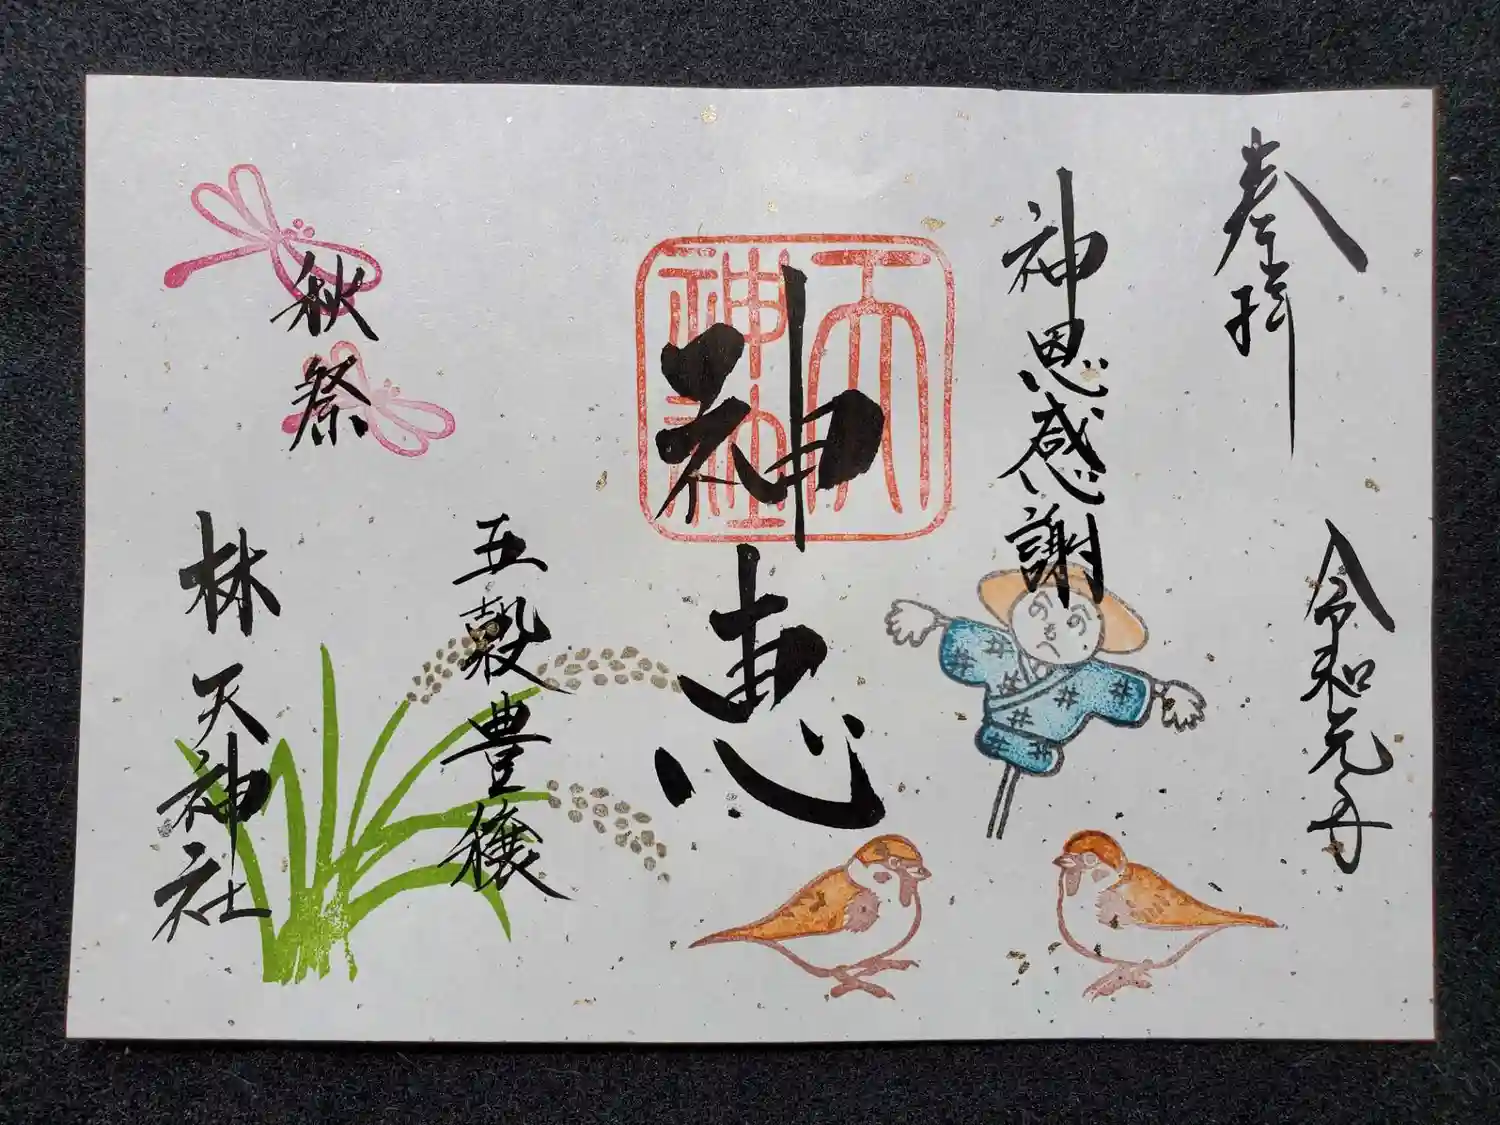 奉拝
令和元年
神恩感謝
天神社
神恵
五穀豊穣
秋祭
林 天神社